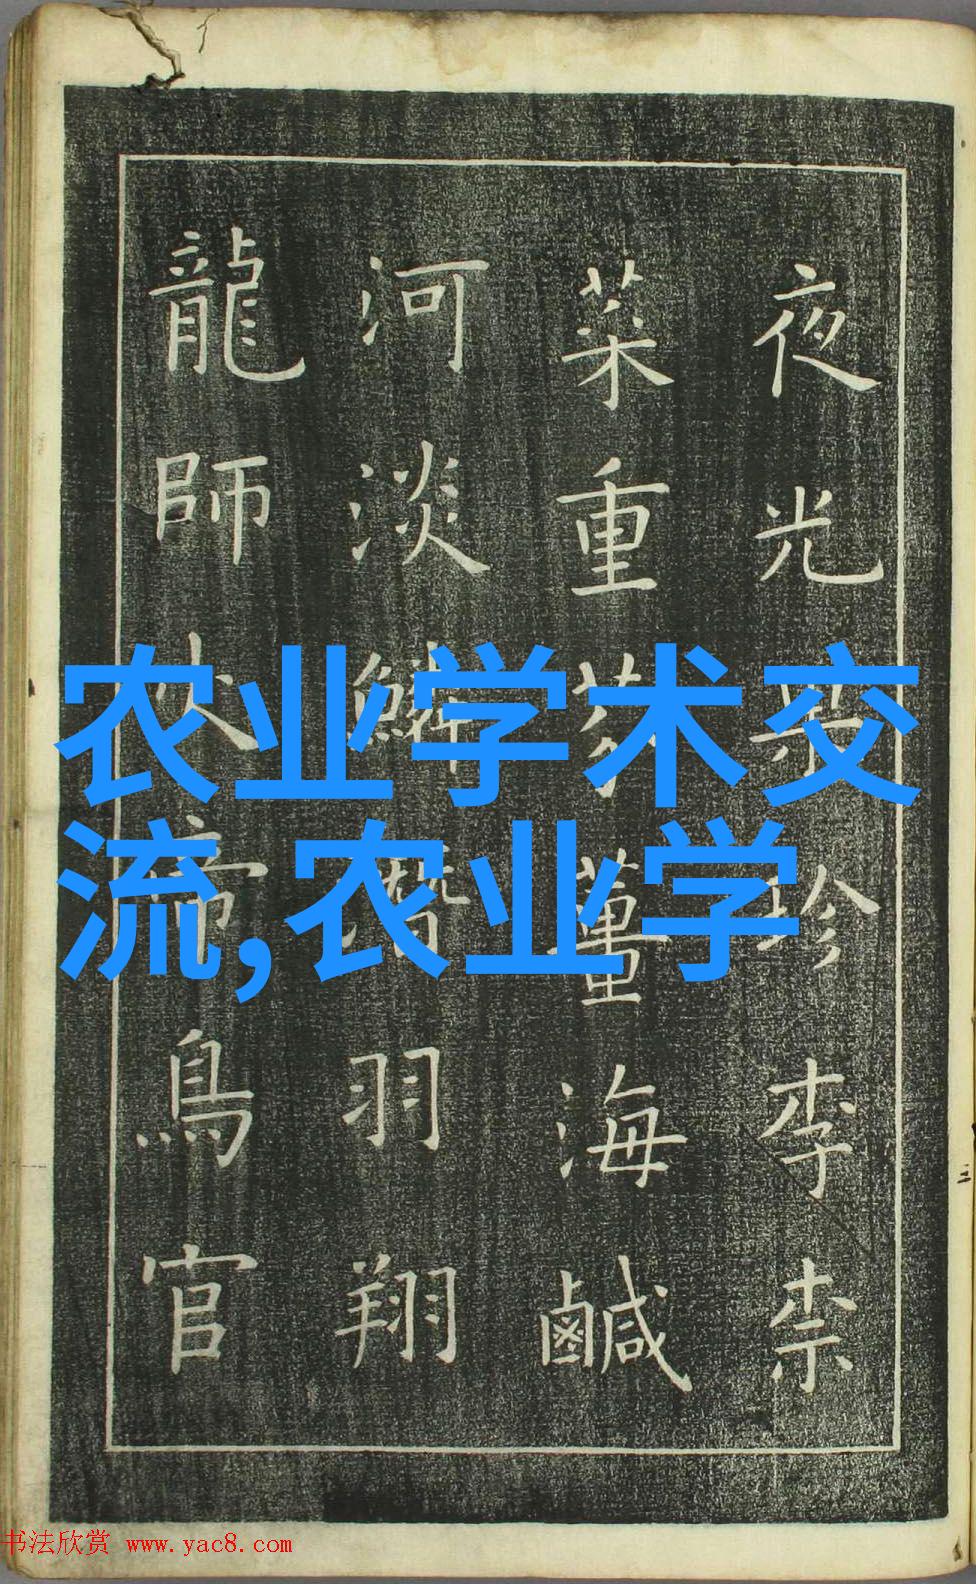 夜光珍李柰
菜重芥薑海鹹
河淡鱗潛羽翔
龍師火帝鳥官
农业学术交
流,农业学
书法欣赏 www.yac8.com